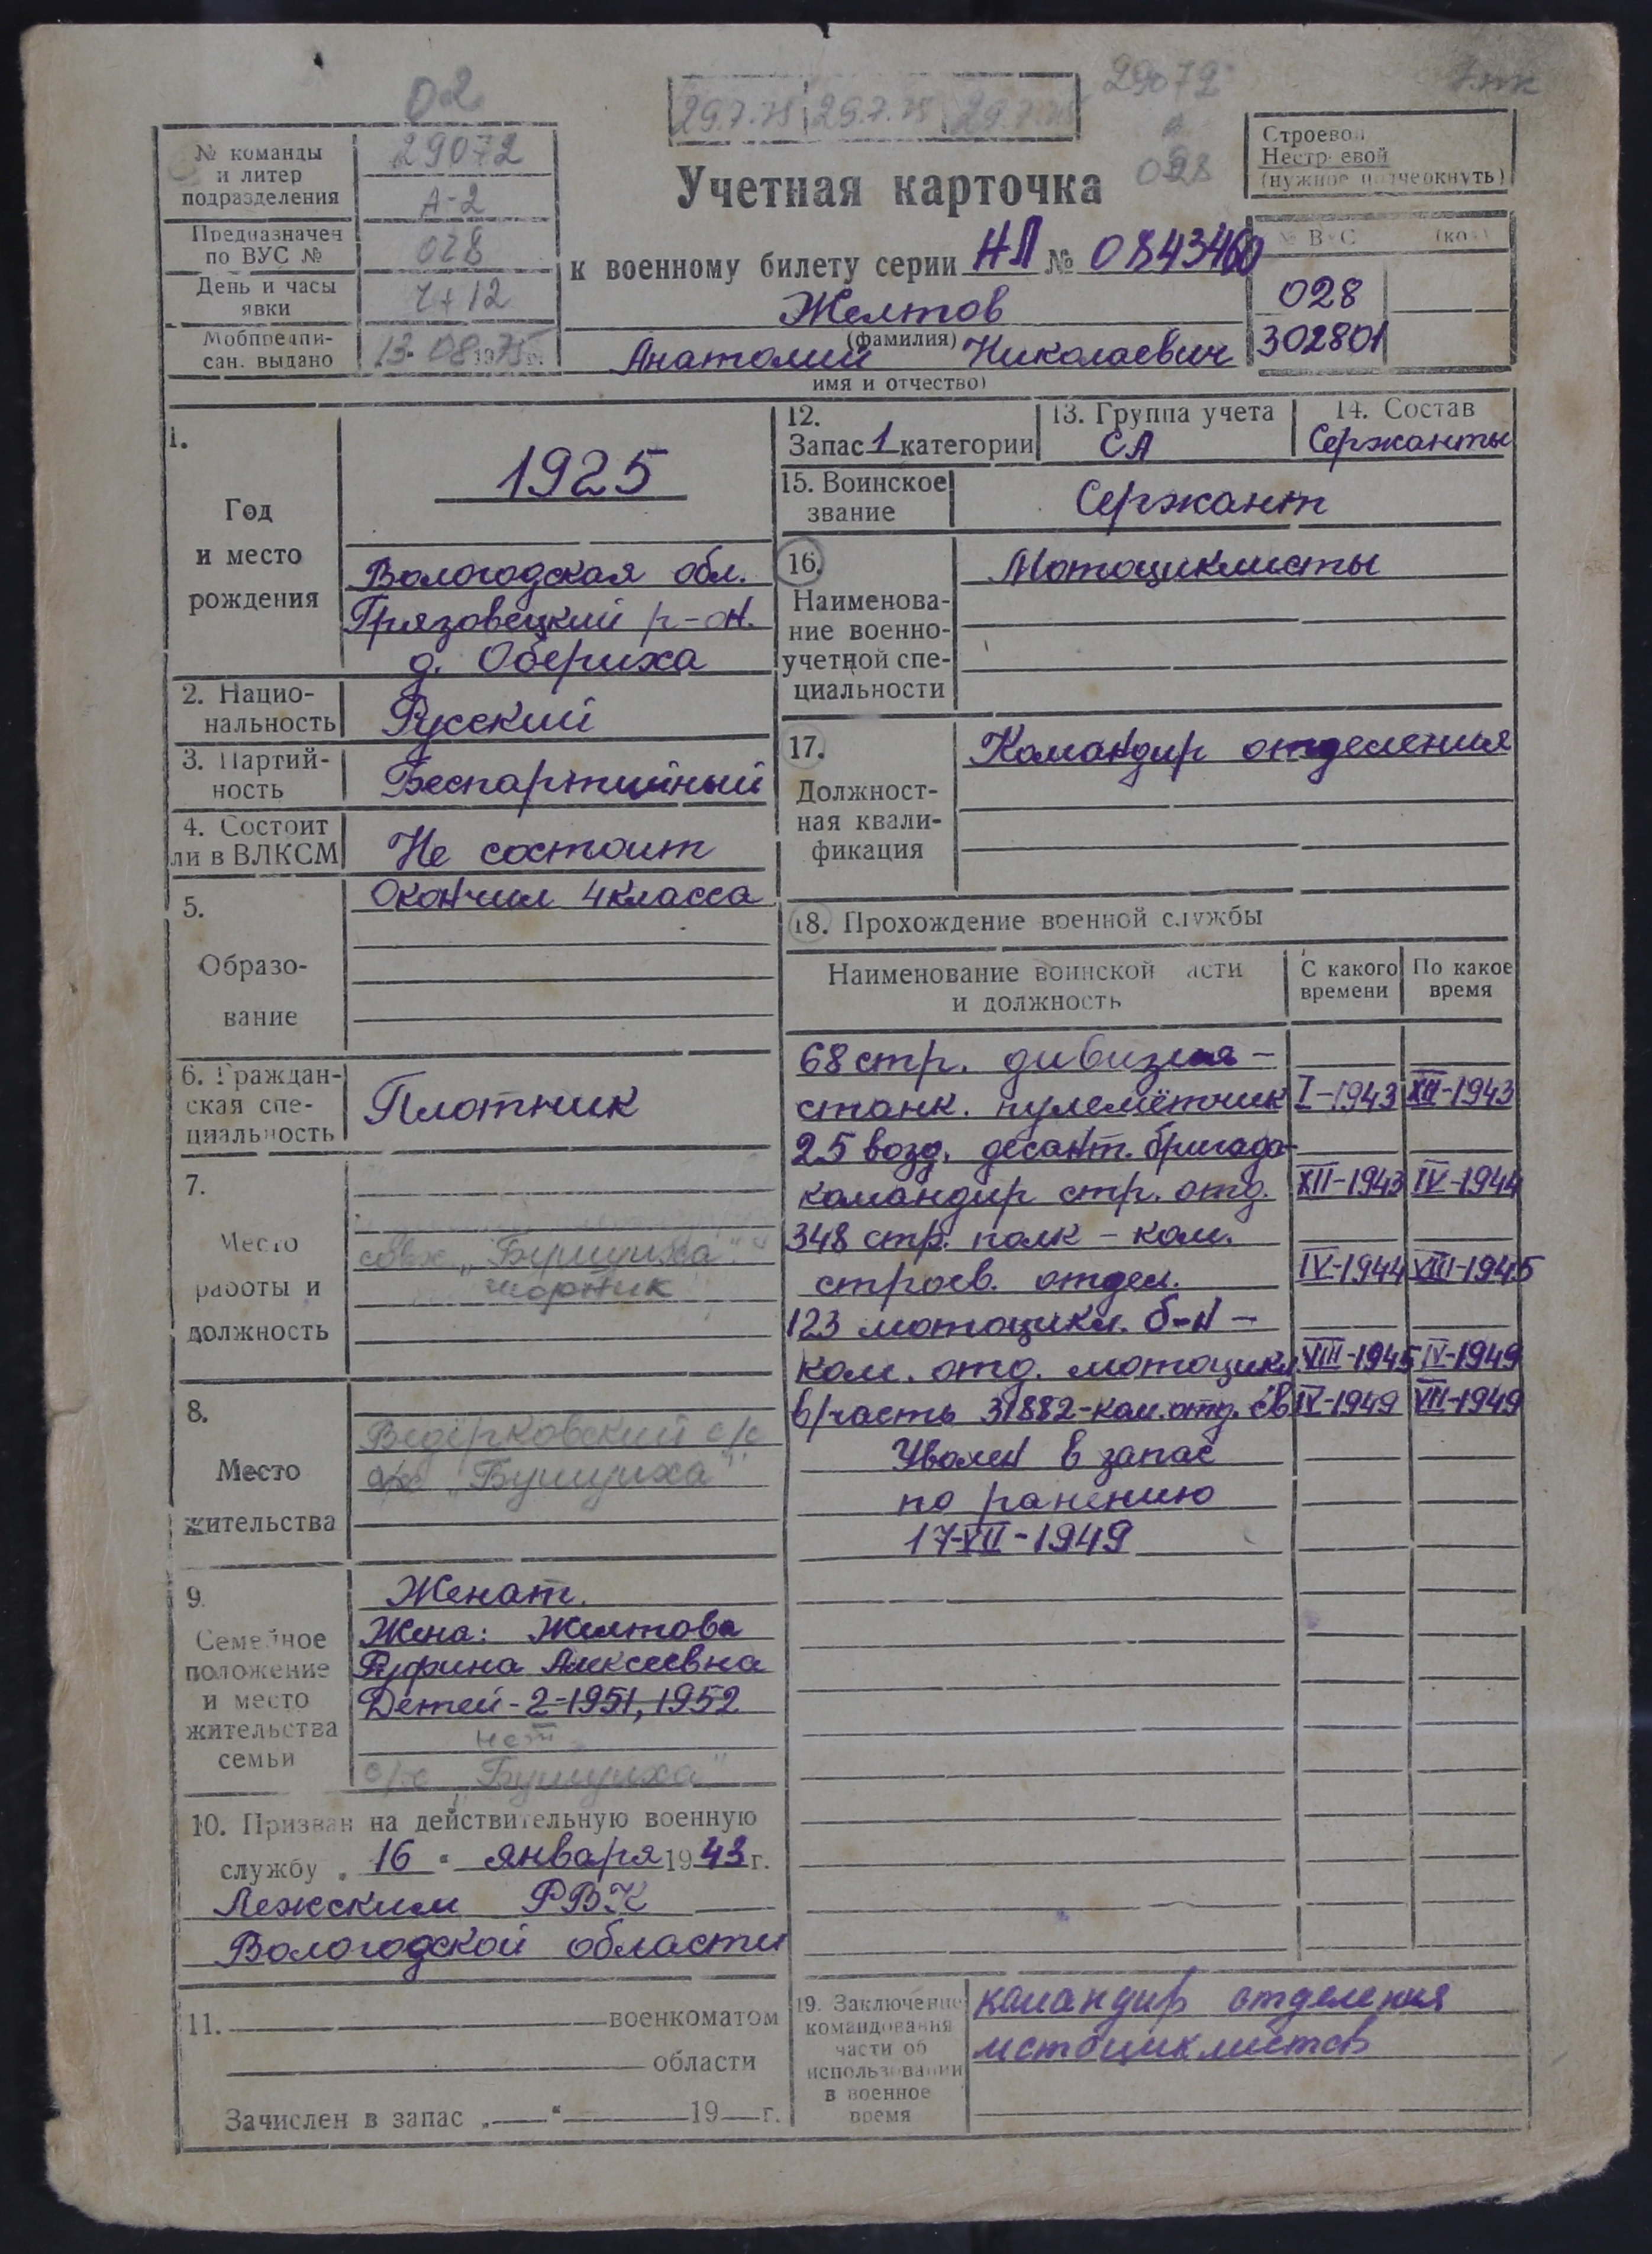 02
29.7.75 29.7.75 29.7.75
29072
028
№ команды
и литер
подразделения
29072
А-2
Предназначен
по ВУС №
028
День и часы
явки
Ч+12
Мобпредпи-
сан. выдано
13.08.1975г.
Учетная карточка
к военному билету серии НЛ № 0843460
Желтов
(фамилия)
Анатолий Николаевич
имя и отчество)
Строевой
Нестроевой
(нужное подчеркнуть)
№ ВУС (код)
028
302801
1.
Год
и место
рождения
1925
Вологодская обл.
Грязовецкий р-он.
д. Обериха
2. Нацио-
нальность
Русский
3. Партий-
ность
Беспартийный
4. Состоит
ли в ВЛКСМ
Не состоит
5.
Образо-
вание
Окончил 4 класса
6. Граждан-
ская спе-
циальность
Плотник
7.
Место
работы и
должность
совх „Бушуиха"
8.
Место
жительства
Ведёрковский с/с
„Бушуиха"
9.
Семейное
положение
и место
жительства
семьи
Женат.
Жена: Желтова
Руфина Алексеевна
Детей - 2-1951, 1952
нет
„Бушуиха"
10. Призван на действительную военную
службу „16" января 1943г.
Лежским РВК
Вологодской области
11. военкоматом
области
Зачислен в запас „ " 19 г.
12.
Запас 1 категории
13. Группа учета
СА
14. Состав
Сержанты
15. Воинское
звание
Сержант
16.
Наименова-
ние военно-
учетной спе-
циальности
Мотоциклисты
17.
Должност-
ная квали-
фикация
Командир отделения
18. Прохождение военной службы
Наименование воинской части
и должность
С какого
времени
По какое
время
68 стр. дивизия -
станк. пулемётчик I-1943 XII-1943
25 возд. десант. бригада -
командир стр. отд. XII-1943 IV-1944
348 стр. полк - ком.
строев. отдел. IV-1944 VIII-1945
123 мотоцикл. б-н -
ком. отд. мотоцикл. VIII-1945 IV-1949
в/часть 31882-ком.отд. св IV-1949 VII-1949
Уволен в запас
по ранению
17-VII-1949
19. Заключение
командования
части об
использовании
в военное
время
командир отделения
мотоциклистов